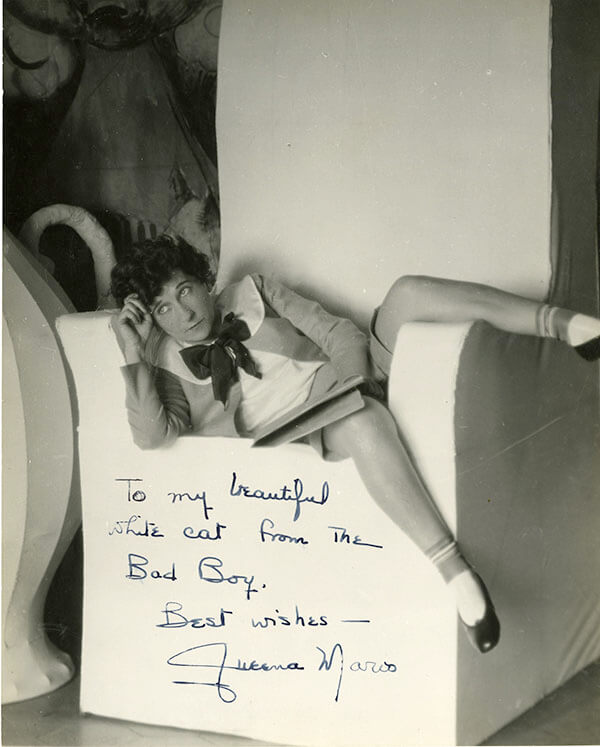 To my beautiful
white cat from The
Bad Boy.
Best wishes —
Queena Mario